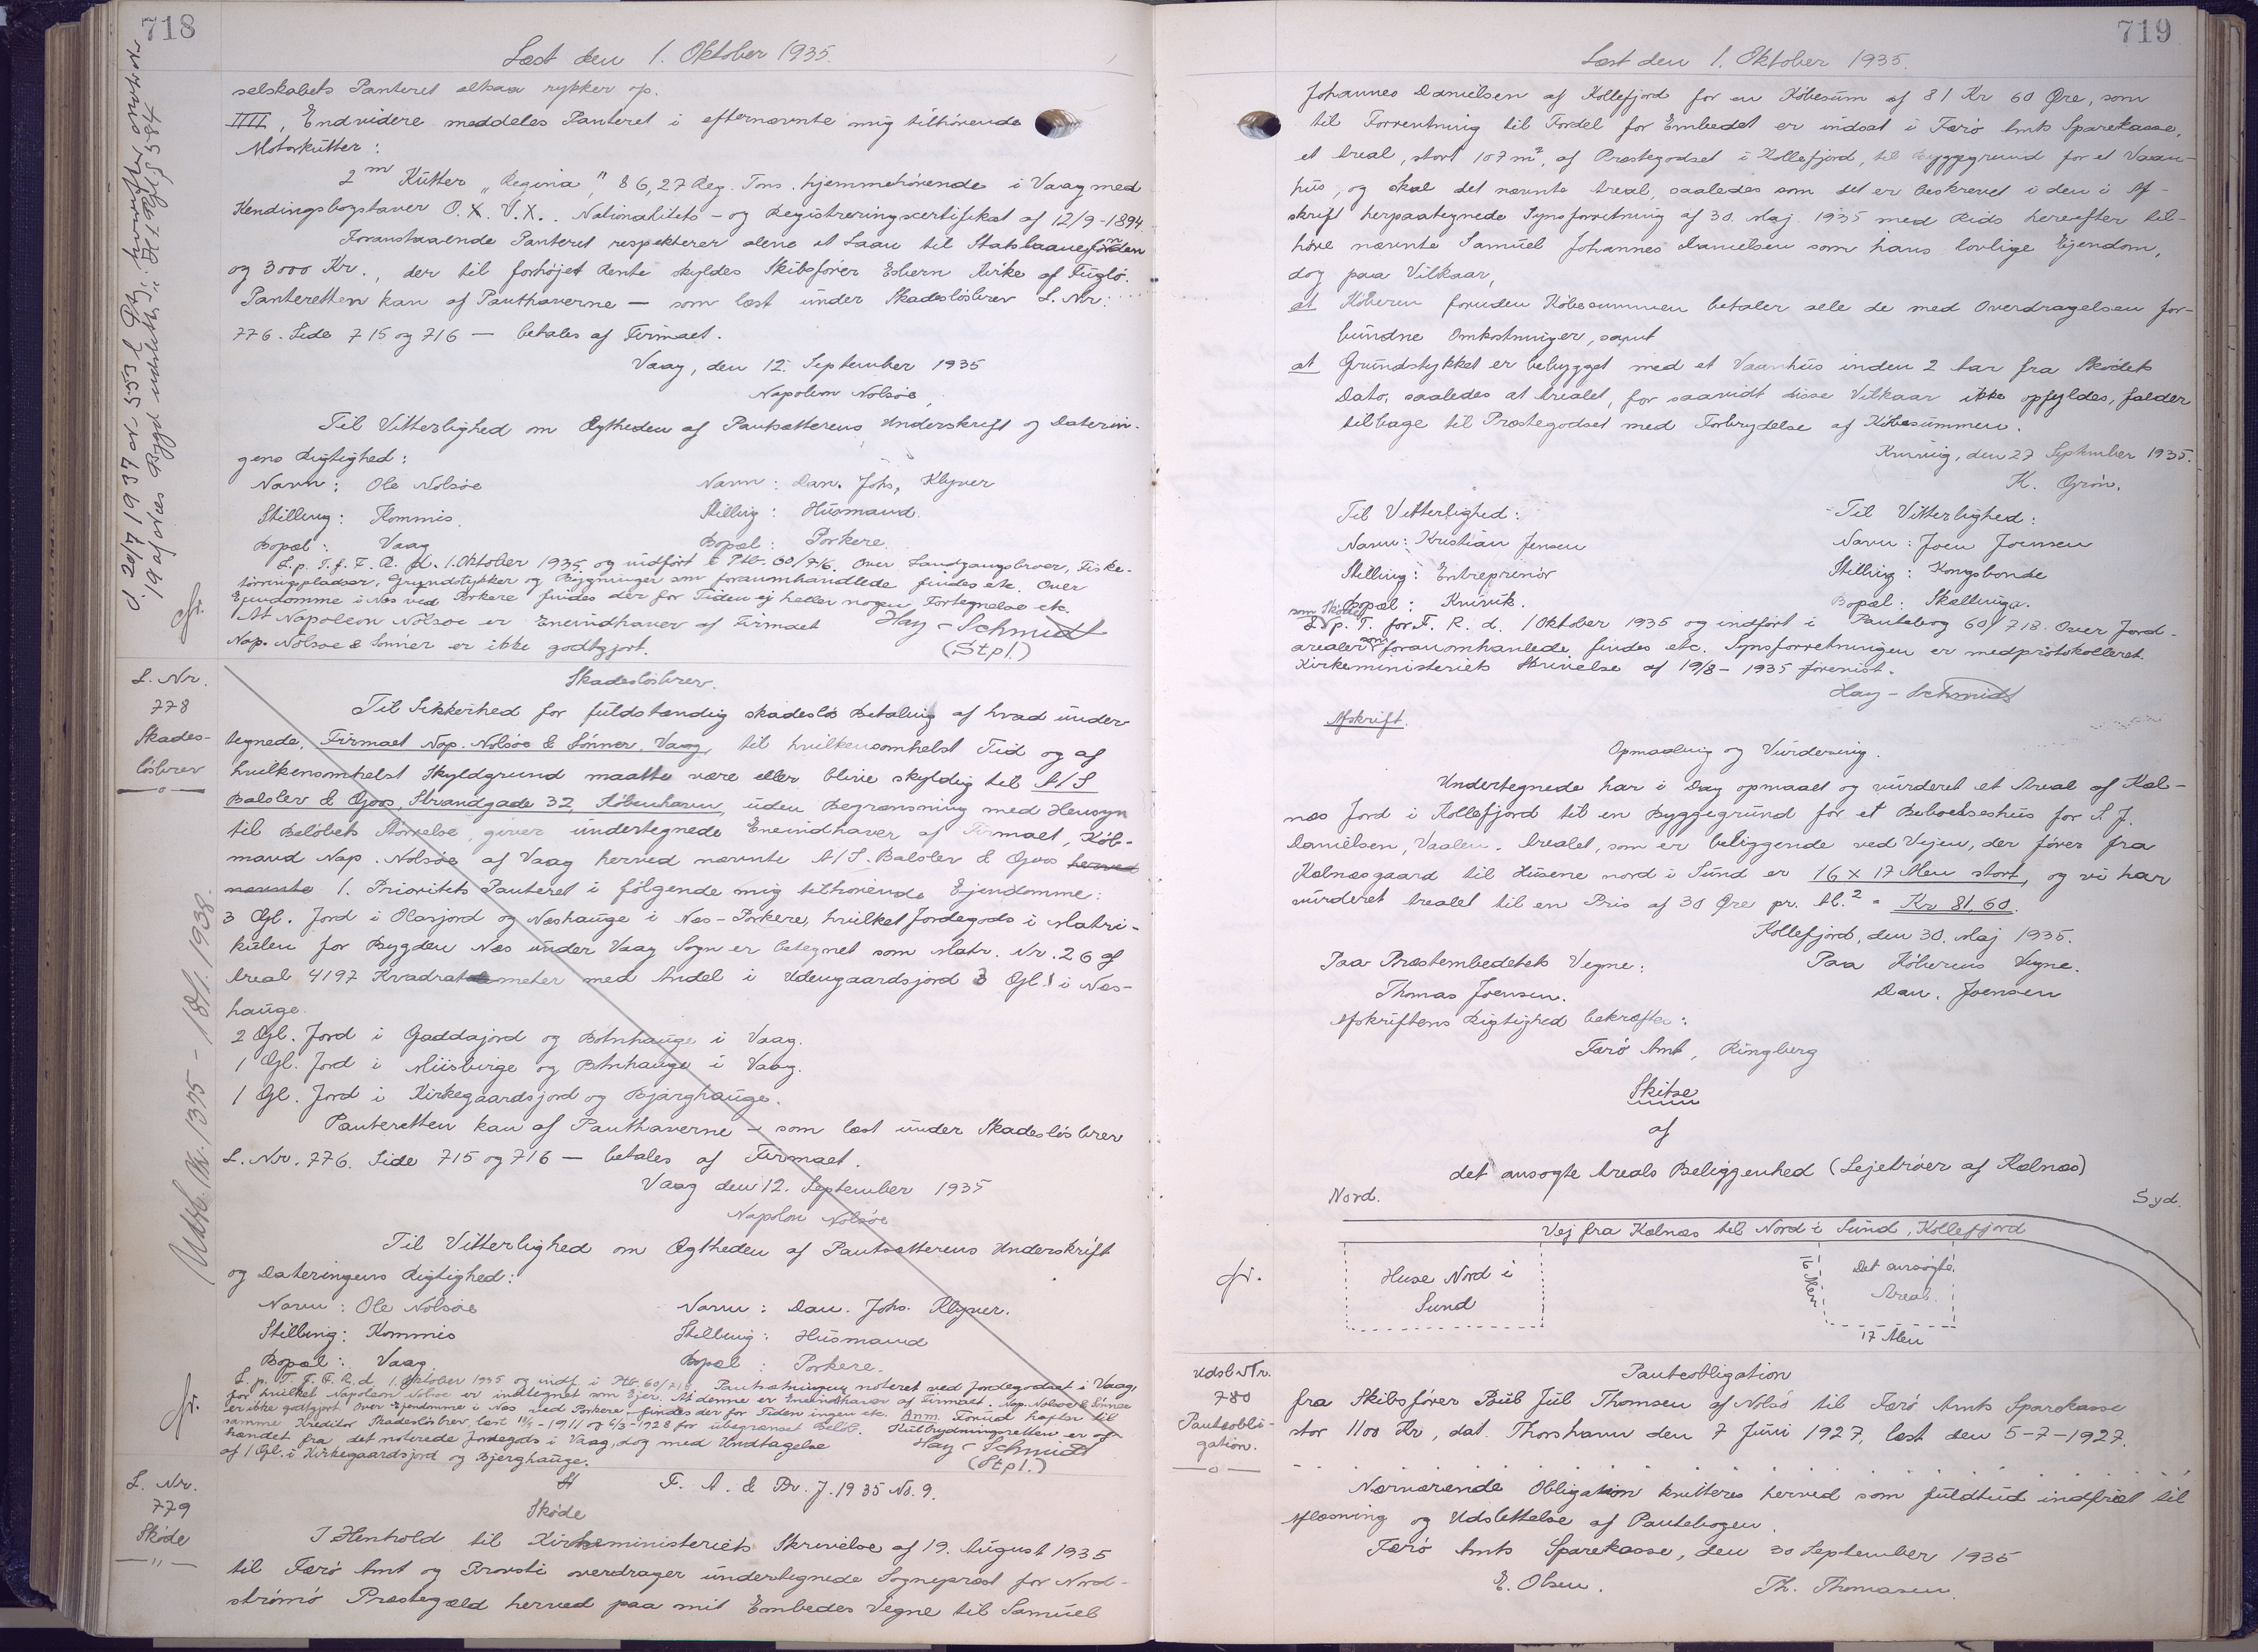 718
Læst den 1. Oktober 1935.
selskabets Panteret altsaa rykker op.
IIII, Endvidere meddeles Panteret i efternævnte mig tilhørende
Motorkutter:
2 m Kutter "Regina", 86,27 Reg. Tons. hjemmehørende i Vaag med
Kendingsbogstaver O.X.V.X.. Nationalitets- og Registreringscertifikat af 12/9-1894.
Foranstaaende Panteret respekterer alene et Laan til Statslaanefonden
og 3000 Kr., der til forhøjet Rente skyldes Skibsfører Esbern Kirke af Fuglø.
Panteretten kan af Panthaverne — som læst under Skadesløsbrev L. Nr:
776. Side 715 og 716 — betales af Firmaet.
Vaag, den 12. September 1935
Napoleon Nolsøe,
Til Vitterlighed om Ægtheden af Pantsætterens Underskrift og Daterin-
gens Rigtighed:
Navn: Ole Nolsøe Navn: Dan. Johs, Klyver
Stilling: Kommis. Stilling: Husmand.
Bopæl: Vaag Bopæl: Porkere.
L. p. T. f. F. R. d. 1. Oktober 1935 og indført i Ptb. 60/716. Over Landgangsbroer, Fiske-
tørringspladser, Grundstykker og Bygninger som foranmhandlede findes etc. Over
Ejendomme i Næs ved Porkere findes der for Tiden ej heller nogen Fortegnelse etc.
At Napoleon Nolsøe er Eneindhaver af Firmaet Hay-Schmidt
Nap. Nolsøe & Sønner er ikke godtgjort. (Stpl.)
L. Nr.
778
Skades-
løsbrev
Skadesløsbrev.
Til Sikkerhed for fuldstændig skadesløs Betaling af hvad under-
tegnede, Firmaet Nap. Nolsøe & Sønner, Vaag, til hvilkensomhelst Tid og af
hvilkensomhelst Skyldgrund maatte være eller blive skyldig til A/S
Balslev & Goos, Strandgade 32, København, uden Begrænsning med Hensyn
til Beløbets Størrelse, giver undertegnede Eneindhaver af Firmaet, Køb-
mand Nap. Nolsøe af Vaag herved nævnte A/S. Balslev & Goos herved
nævnte 1. Prioritets Panteret i følgende mig tilhørende Ejendomme:
3 Gl. Jord i Olasjord og Næshauge i Næs-Porkere, hvilket Jordegods i Matri-
kulen for Bygden Næs under Vaag Sogn er betegnet som Matr. Nr. 26 af
Areal 4197 Kvadratmeter med Andel i Udengaardsjord 3 Gl. i Næs-
hauge.
2 Gl. Jord i Gaddajord og Botnhauge i Vaag.
1 Gl. Jord i Miisbirge og Botnhauge i Vaag.
1 Gl. Jord i Kirkegaardsjord og Bjærghauge.
Panteretten kan af Panthaverne — som læst under Skadesløsbrev
L. Nr. 776. Side 715 og 716 — betales af Firmaet.
Vaag den 12. September 1935
Napoleon Nolsøe
Til Vitterlighed om Ægtheden af Pantsætterens Underskrift
og Dateringens Rigtighed:
Navn: Ole Nolsøe Navn: Dan. Johs. Klyver.
Stilling: Kommis Stilling: Husmand
Bopæl: Vaag Bopæl: Porkere.
L. p. T. F. F. R. d. 1. Oktober 1935 og indf. i Ptb. 60/718. Pantsætningen noteret ved Jordegodset i Vaag,
for hvilket Napoleon Nolsøe er indtegnet som Ejer. At denne er Eneindhaver af Firmaet Nap. Nolsøe & Sønner
er ikke godtgjort. Over Ejendomme i Næs ved Porkere findes der for Tiden ingen etc. Anm. Forud hæfter til
samme Kreditor Skadesløsbrev, læst 11/5-1911 og 6/3-1928 for ubegrænset Beløb. Kulbrydningsretten er af-
hændet fra det noterede Jordegods i Vaag, dog med Undtagelse Hay-Schmidt
af 1 Gl. i Kirkegaardsjord og Bjerghauge. (Stpl.)
L. Nr.
779
Skøde
F. A. & Pr. J. 1935 No. 9.
Skøde
I Henhold til Kirkeministeriets Skrivelse af 19. August 1935
til Færø Amt og Provsti overdrager undertegnede Sognepræst for Nord-
strømø Præstegæld herved paa mit Embedes Vegne til Samuel
719
Læst den 1. Oktober 1935.
Johannes Danielsen af Kollefjord for en Købesum af 81 Kr 60 Øre, som
til Forrentning til Fordel for Embedet er indsat i Færø Amts Sparekasse,
et Areal, stort 107 m², af Præstegodset i Kollefjord, til Byggegrund for et Vaan-
hus, og skal det nævnte Areal, saaledes som det er beskrevet i den i Af-
skrift herpaategnede Synsforretning af 30. Maj 1935 med Rids herefter til-
høre nævnte Samuel Johannes Danielsen som hans lovlige Ejendom,
dog paa Vilkaar,
at Køberen foruden Købesummen betaler alle de med Overdragelsen for-
bundne Omkostninger, samt
at Grundstykket er bebygget med et Vaanhus inden 2 Aar fra Skødets
Dato, saaledes at Arealet, for saavidt disse Vilkaar ikke opfyldes, falder
tilbage til Præstegodset med Forbrydelse af Købesummen.
Kvivig, den 27 September 1935.
K. Grøn.
Til Vitterlighed: Til Vitterlighed:
Navn: Kristian Jensen Navn: Joen Joensen
Stilling: Entreprenør Stilling: Kongsbonde
Bopæl: Kvivik. Bopæl: Skællinge.
som Skøde
L. p. T. for F. R. d. 1 Oktober 1935 og indført i Pantebog 60/718. Over Jord-
arealer som foranomhandlede findes etc. Synsforretningen er medprotokolleret.
Kirkeministeriets Skrivelse af 19/8-1935 forevist.
Hay-Schmidt
Afskrift.
Opmaaling og Vurdering.
Undertegnede har i Dag opmaalt og vurderet et Areal af Kal-
næs Jord i Kollefjord til en Byggegrund for et Beboelseshus for S. J.
Danielsen, Vaalen. Arealet, som er beliggende ved Vejen, der fører fra
Kalnæsgaard til Husene nord i Sund er 16 x 17 Alen stort, og vi har
vurderet Arealet til en Pris af 30 Øre pr. Al.² = Kr 81,60.
Kollefjord, den 30. Maj 1935.
Paa Præstembedets Vegne: Paa Køberens Vegne.
Thomas Joensen. Dan. Joensen
Afskriftens Rigtighed bekræftes:
Færø Amt, Ringberg
Skitse
af
det ansøgte Areals Beliggenhed (Lejebrøer af Kalnæs)
Nord. Syd.
Vej fra Kalnæs til Nord i Sund, Kollefjord
Huse Nord i
Sund
16 Alen
Det ansøgte
Areal.
17 Alen
Udsl. Nr.
780
Panteobli-
gation.
Panteobligation
fra Skibsfører Poul Jul Thomsen af Nolsø til Færø Amts Sparekasse
stor 1100 Kr, dat. Thorshavn den 7 Juni 1927, læst den 5-7-1927.
Nærværende Obligation kvitteres herved som fuldtud indfriet til
Aflæsning og Udslettelse af Pantebogen.
Færø Amts Sparekasse, den 30 September 1935
E. Olsen. Th. Thomasen.